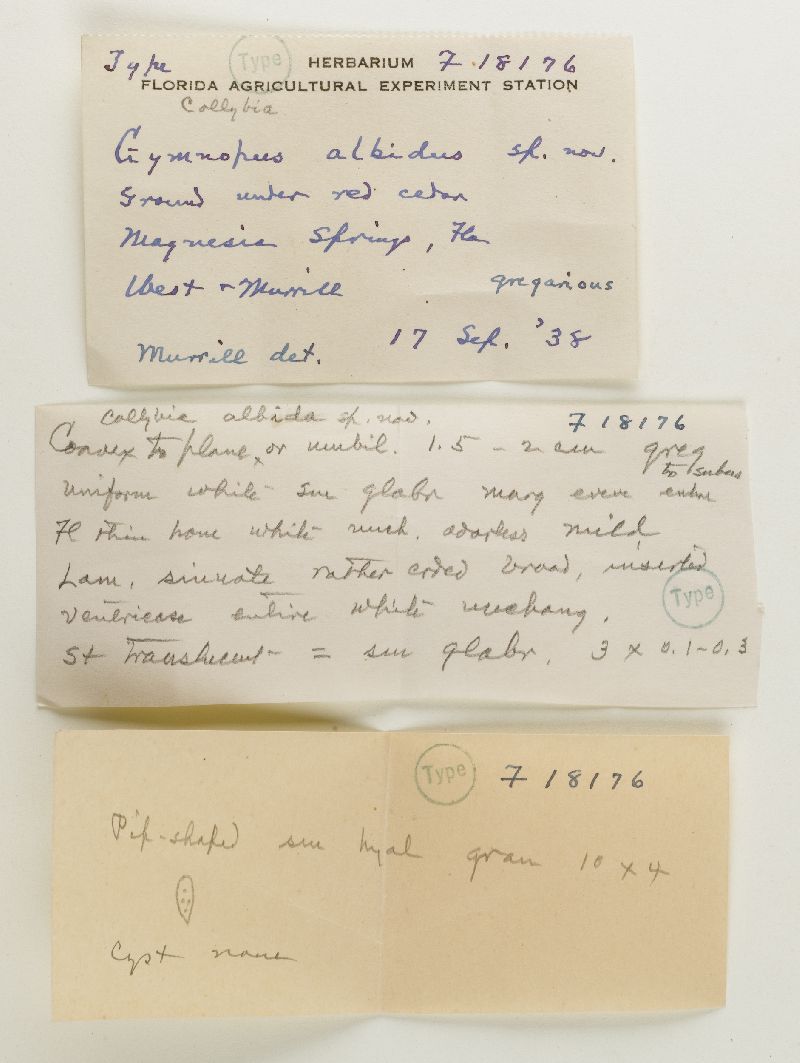 Type Type HERBARIUM F 18176
FLORIDA AGRICULTURAL EXPERIMENT STATION
Collybia
Gymnopus albidus sp. nov.
Ground under red cedar
Magnesia Springs, Fla
West + Murrill gregarious
Murrill det. 17 Sep. '38
Collybia albida sp. nov. F 18176
Convex to plane, or umbil. 1.5 - 2 cm greg
to subces
uniform white sm glabr marg even entire
Fl thin hom white unch. odorless mild
Lam. sinuate rather crded broad, inserted
ventricose entire white unchang. Type
St translucent = sm glabr. 3 x 0.1-0.3
Type F 18176
Pip-shaped sm hyal gran 10 x 4
Cyst none